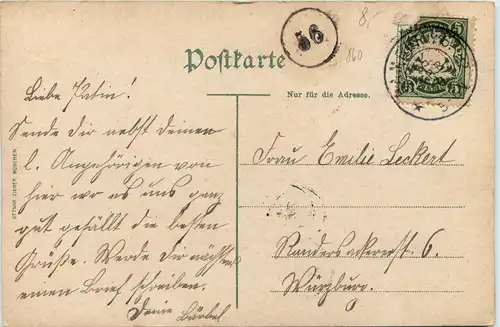 56
8,-
160
Postkarte
Nur für die Adresse.
Liebe Patin!
Sende Dir nebst deinen
l. Angehörigen von
hier wo es uns ganz
gut gefällt die besten
Grüße. Werde Dir nächstens
einen Brief schreiben.
Deine Bärbel
Frau Emilie Leckert
Randersackererstr. 6.
Würzburg.
OTTMAR ZIEHER, MÜNCHEN
5
5